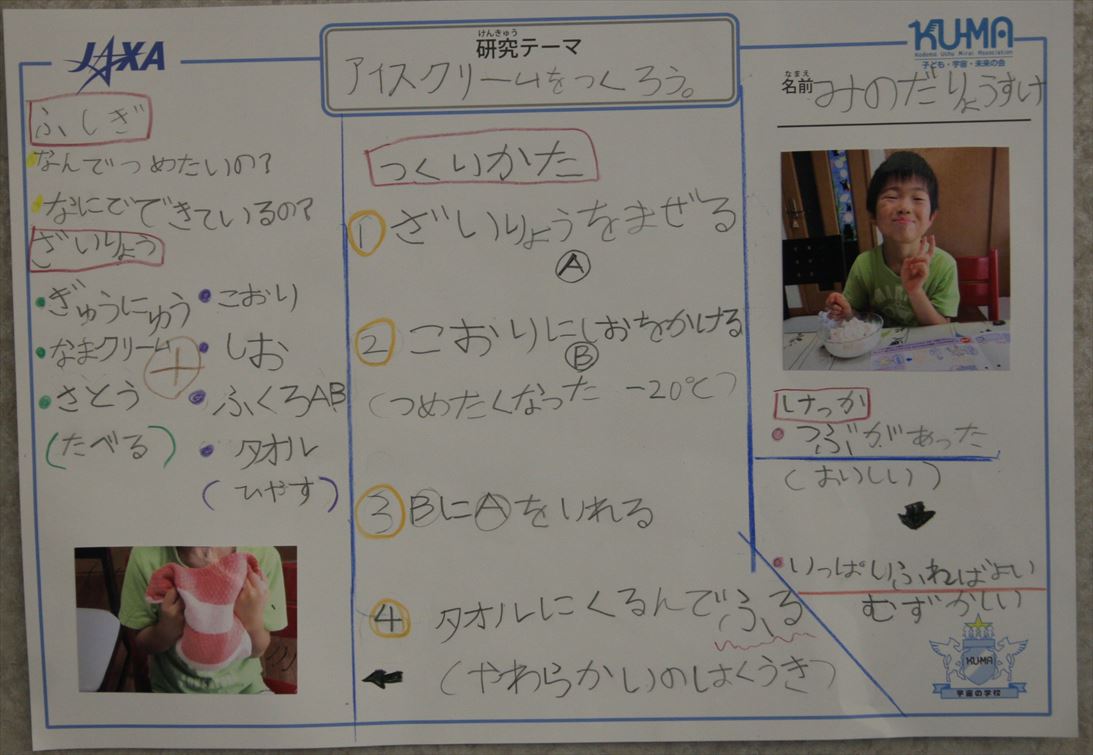 JAXA
けんきゅう
研究テーマ
アイスクリームをつくろう。
KU-MA
Kodomo Uchu Mirai Association
子ども・宇宙・未来の会
なまえ
名前 みのだりょうすけ
ふしぎ
なんでつめたいの?
なにでできているの?
ざいりょう
・ぎゅうにゅう
・なまクリーム
・さとう
(たべる)
+
・こおり
・しお
・ふくろAB
・タオル
(ひやす)
つくりかた
① ざいりょうをまぜる
Ⓐ
② こおりにしおをかける
Ⓑ
(つめたくなった -20℃)
③ ⒷにⒶをいれる
④ タオルにくるんでふる
(やわらかいのはくうき)
けっか
・つぶがあった
(おいしい)
・いっぱいふればよい
むずかしい
KU-MA
宇宙の学校